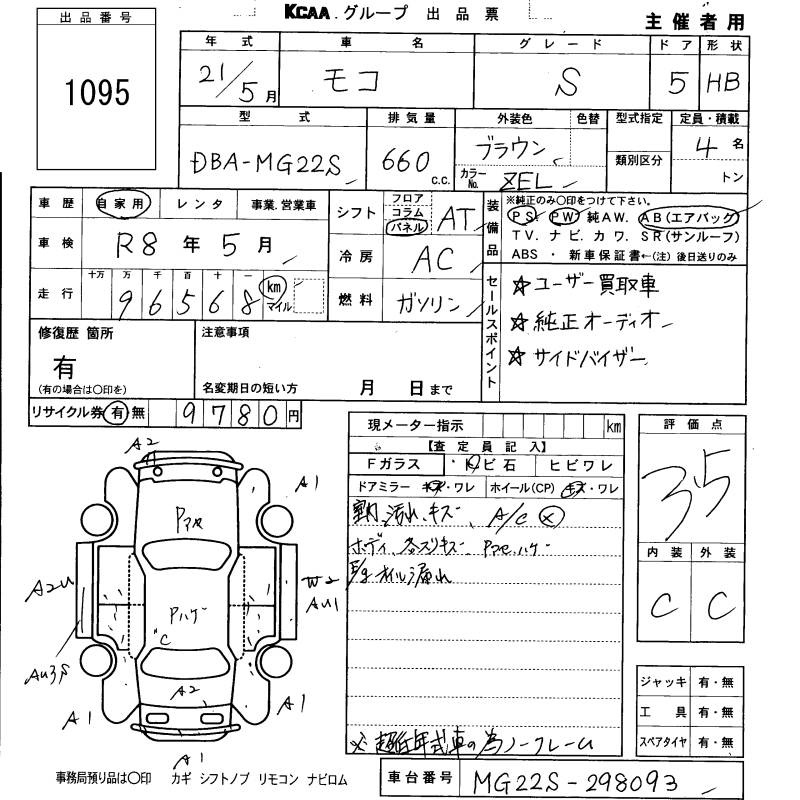 KCAA グループ 出品票
主催者用
出品番号
1095
年式 車名 グレード ドア 形状
21/5月 モコ S 5 HB
型式 排気量 外装色 色替 型式指定 定員・積載
DBA-MG22S 660 c.c. ブラウン 類別区分 4名
カラーNo. ZEL トン
車歴 自家用 レンタ 事業.営業車
車検 R8年5月
十万 万 千 百 十 一
走行 96568 km マイル
シフト フロア コラム パネル AT
冷房 AC
燃料 ガソリン
装備品 ※純正のみ〇印をつけて下さい。
PS. PW 純AW. AB(エアバッグ)
TV. ナビ. カワ. SR(サンルーフ)
ABS ・ 新車保証書←(注) 後日送りのみ
セールスポイント
☆ユーザー買取車
☆純正オーディオ
☆サイドバイザー
修復歴 箇所
有
(有の場合は〇印を)
注意事項
名変期日の短い方 月 日まで
リサイクル券 有 無 9780円
現メーター指示 km
【査定員記入】
Fガラス ・トビ石 ヒビワレ
ドアミラー キズ・ワレ ホイール(CP) キズ・ワレ
汚れ、キズ、 A/C ×
ボディ 各スリキズ ハゲ
オイル漏れ
※超低年式車の為ノークレーム
評価点
3.5
内装 外装
C C
ジャッキ 有・無
工具 有・無
スペアタイヤ 有・無
A2
A1
A2
W2
AU1
C
A2
A1
A1
A1
事務局預り品は〇印 カギ シフトノブ リモコン ナビロム
車台番号 MG22S-298093